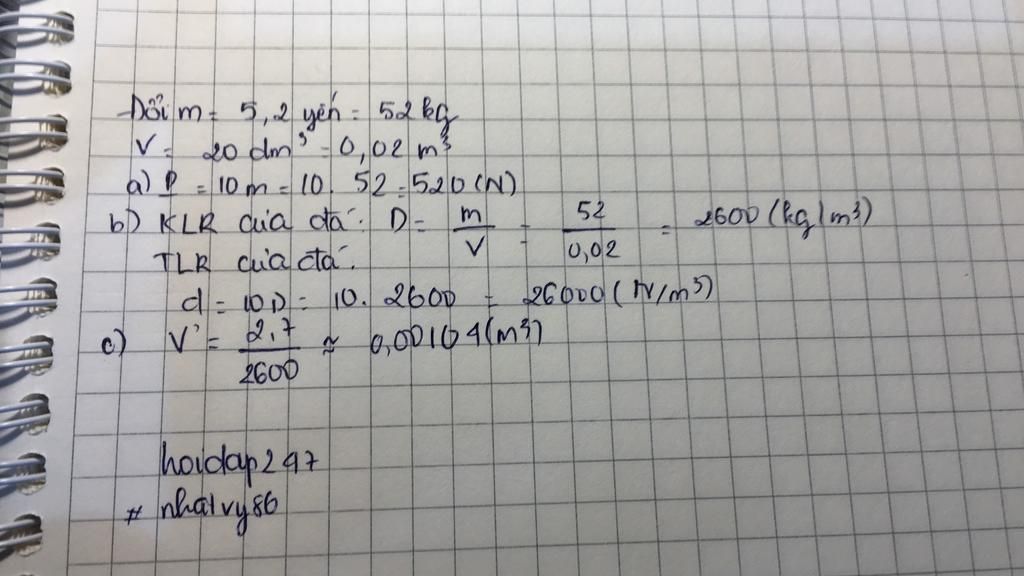 Đổi m = 5,2 yến = 52 kg
V = 20 dm³ = 0,02 m³
a) P = 10m = 10. 52 = 520 (N)
b) KLR của đá: D = m/V = 52/0,02 = 2600 (kg/m³)
TLR của đá:
d = 10D = 10. 2600 = 26000 (N/m³)
c) V' = 2,7/2600 ≈ 0,00104 (m³)
hoidap247
# nhatvy86